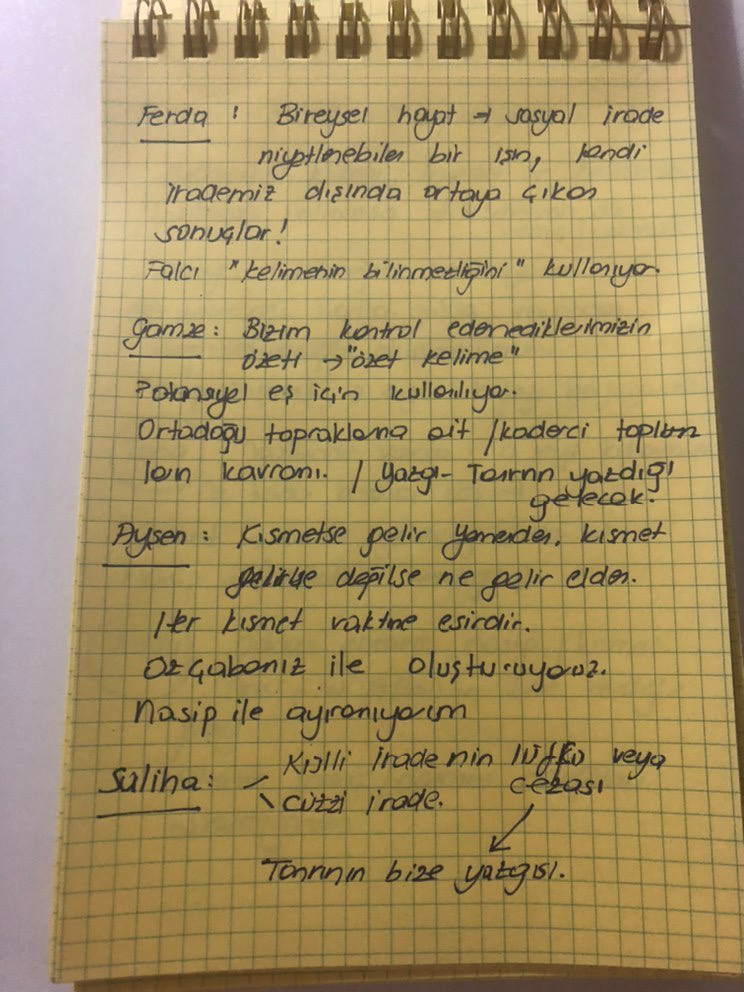 Ferda : Bireysel hayat → sosyal irade
niyetlenebilen bir işin, kendi
irademiz dışında ortaya çıkan
sonuçlar!
Falcı "kelimenin bilinmezliğini" kullanıyor.
Gamze : Bizim kontrol edemediklerimizin
özeti → "özet kelime"
Potansiyel eş için kullanılıyor.
Ortadoğu topraklarına ait / kaderci toplum
ların kavramı. / Yazgı - Tanrının yazdığı
gelecek.
Ayşen : Kısmetse gelir Yemenden, kısmet
değilse ne gelir elden.
Her kısmet vaktine esirdir.
Öz çabamız ile oluşturuyoruz.
Nasip ile ayıramıyorum
Saliha : Külli irade nin lütfu veya
cüzzi irade. cezası
Tanrının bize yazgısı.